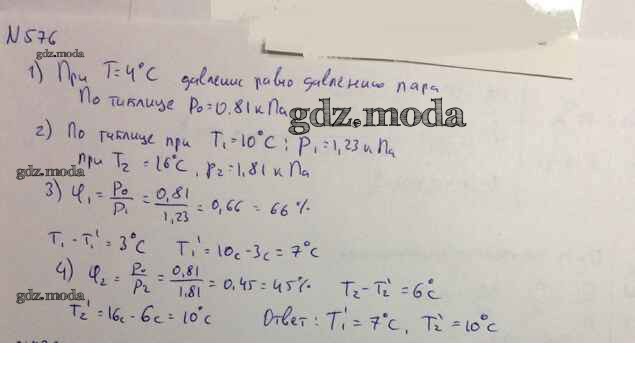 N 576
gdz.moda
1) При T=4°C давление равно давлению пара
По таблице P₀=0,81 кПа
gdz.moda
2) По таблице при T₁=10°C: P₁=1,23 кПа
при T₂=16°C, P₂=1,81 кПа
gdz.moda
3) φ₁ = P₀/P₁ = 0,81/1,23 = 0,66 = 66%
T₁ - T₁' = 3°C T₁' = 10c - 3c = 7°C
4) φ₂ = P₀/P₂ = 0,81/1,81 = 0,45 = 45% T₂ - T₂' = 6°C
gdz.moda
T₂' = 16c - 6c = 10°C Ответ: T₁' = 7°C, T₂' = 10°C